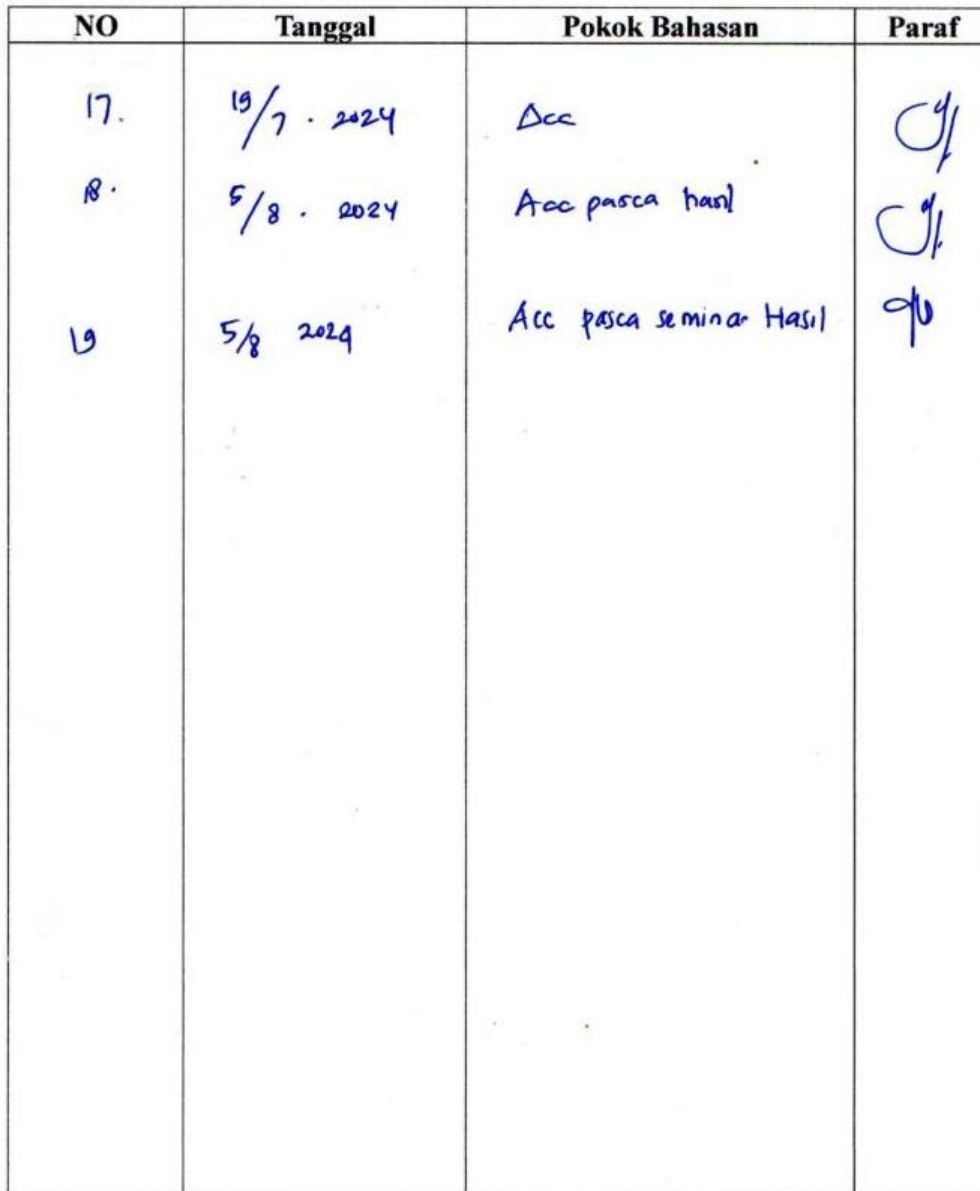 NO Tanggal Pokok Bahasan Paraf
17. 19/7 . 2024 Acc
18. 5/8 . 2024 Acc pasca hasil
19 5/8 2024 Acc pasca seminar Hasil